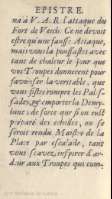 EPISTRE.
na à V. A. R. l'attaque du
Fort de Vvch: Ce ne devoit
estre qu'une fausse Attaque,
mais vous la poussastes avec
tant de chaleur le jour que
vos Troupes donnerent pour
favoriser la veritable, que
vous fistes rompre les Palissades,
& emporter la Demylune
; de sorte que si on eust
preparé des eschelles, on se
seroit rendu Maistre de la
Place par escalade, tant
vous sçavez, inspirer d'ardeur
aux Troupes que com-